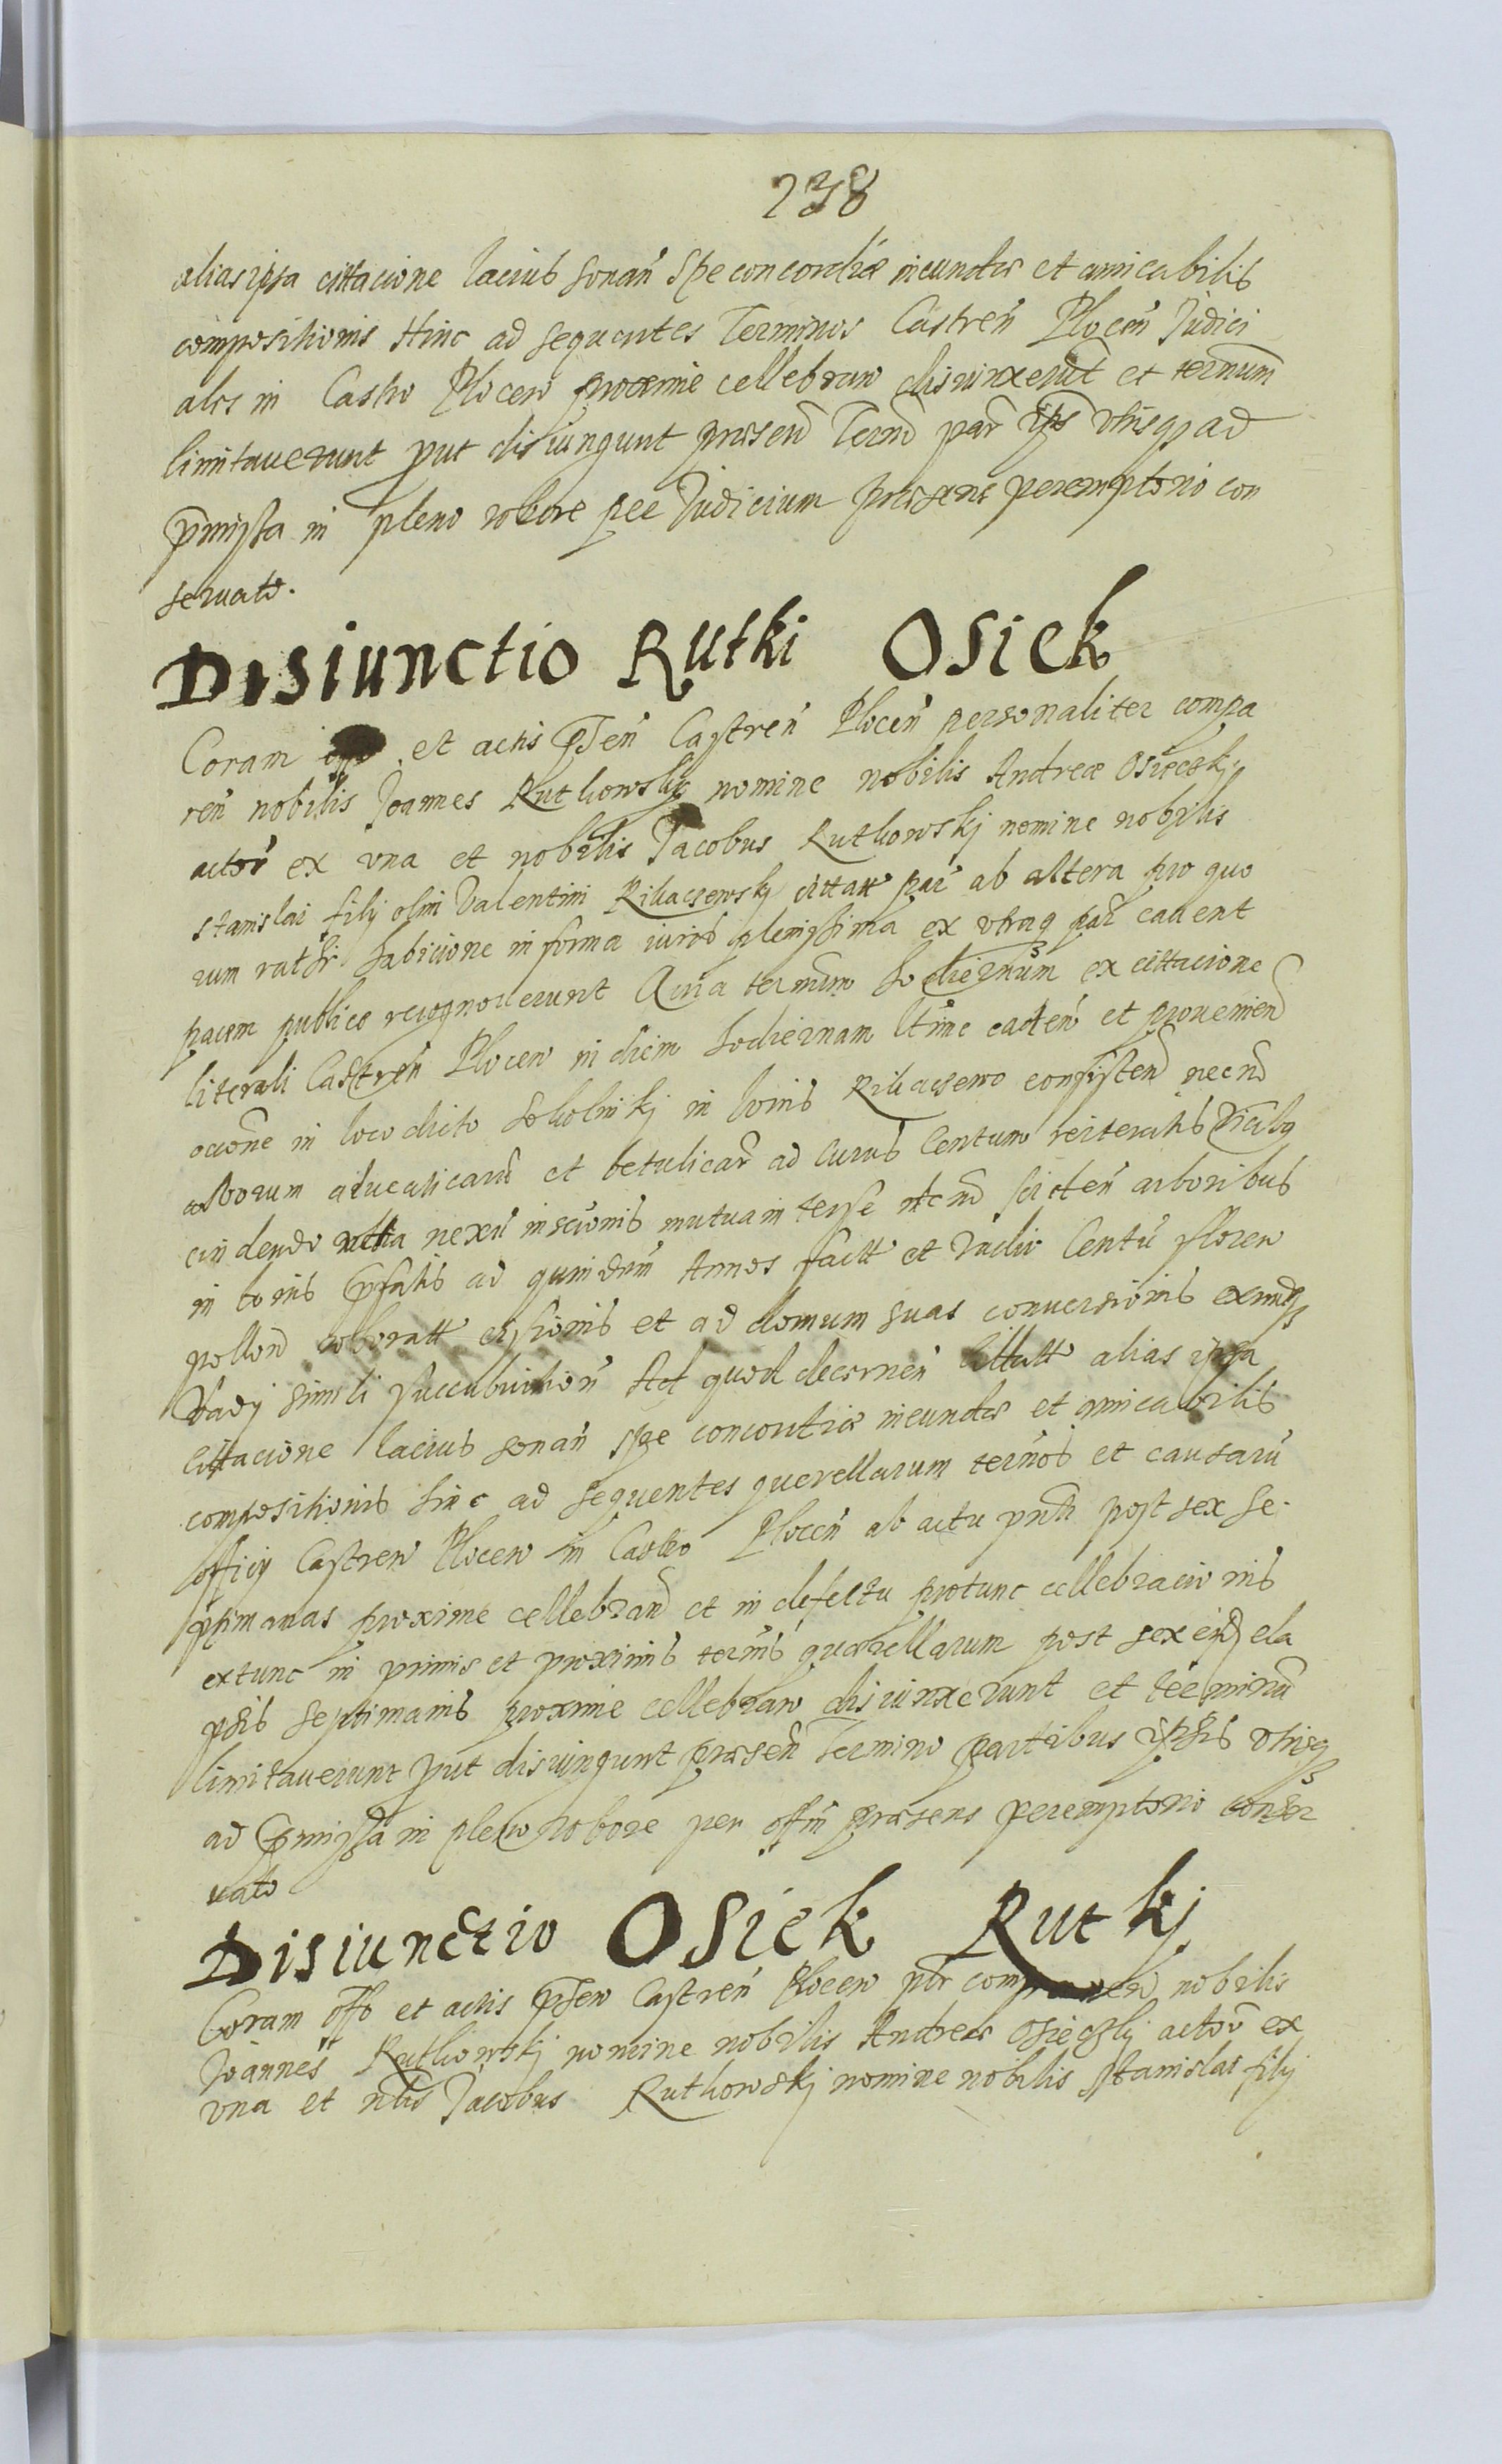 238
alias ipsa cittacione lacius sonan̄ Spe concordiæ ineundæ et amicabilis
compositionis Hinc ad sequentes Terminos Castren̄ Plocen̄ Judici
ales in Castro Plocen proxime cellebran disiunxerūt et termnum̄
limitauerunt put disiungunt præsen̄ Term̄ par̄ ip̄s vtrisq ad
p̄missa in pleno robore per Judicium præsens peremptorio con
seruato.
Disiunctio Rutki Osiek
Coram et actis p̄sen̄ Castren̄ Plocen̄ personaliter compa
ren̄ nobilis Joannes Rutkowskj nomine nobilis Andreæ Osieczkj
actor̄ ex vna et nobilis Jacobus Rutkowskj nomine nobilis
Stanislai filij olim Valentini Ribaczewskj cittatt par̄ ab altera pro quo
rum rathi habicione in forma iuris plenissima ex vtraq par̄ cauent
pacem publice recognouerunt Quia termin̄um hodiernum̄ ex cittacione
literali Castren̄ Plocen in diem hodiernam caden̄ et prouenien̄
in loco dicto Sokolnikj in bonis Ribaczewo consisten̄ necn̄o
et betulicar̄ ad Currus Centum reiteratis
cindendo inscrionis mutua inter se arboribus
in bonis p̄fatis ad Annos factt et Vadio Centū floren
pollon̄ et ad domum suas conuersionis
Vadij simili succubuicion̄ Ad quod decernen̄ Cittatt alias ipsa
Cittacione lacius sonan̄ spe concordiæ ineundæ et amicabilis
compositionis hinc ad sequentes querellarum termōs et causarū
officij Castren Plocen in Castro Plocen̄ ab actu pnt̄i post sex se
ptimanas proxime cellebran̄ et in defectu protunc cellebracionis
extunc in primis et proximis term̄is quærellarum post sex eisd̄ ela
psis septimanis proxime cellebran disiunxerunt et terminū
limitauerunt put disiungunt præsen̄ Termino partibus ipsis vtrisq
ad p̄missa in pleno robore per offm̄ præsens peremptorio conser
uato
Disiunctio Osiek Rutkj
Coram offo et actis p̄sen Castren̄ Plocen plr̄ comparen̄ nobilis
Joannes Rutkowskj nomine nobilis Andreæ Osieczkj actor̄ ex
vna et nblis Jacobus Rutkowskj nomine nobilis Stanislai filij